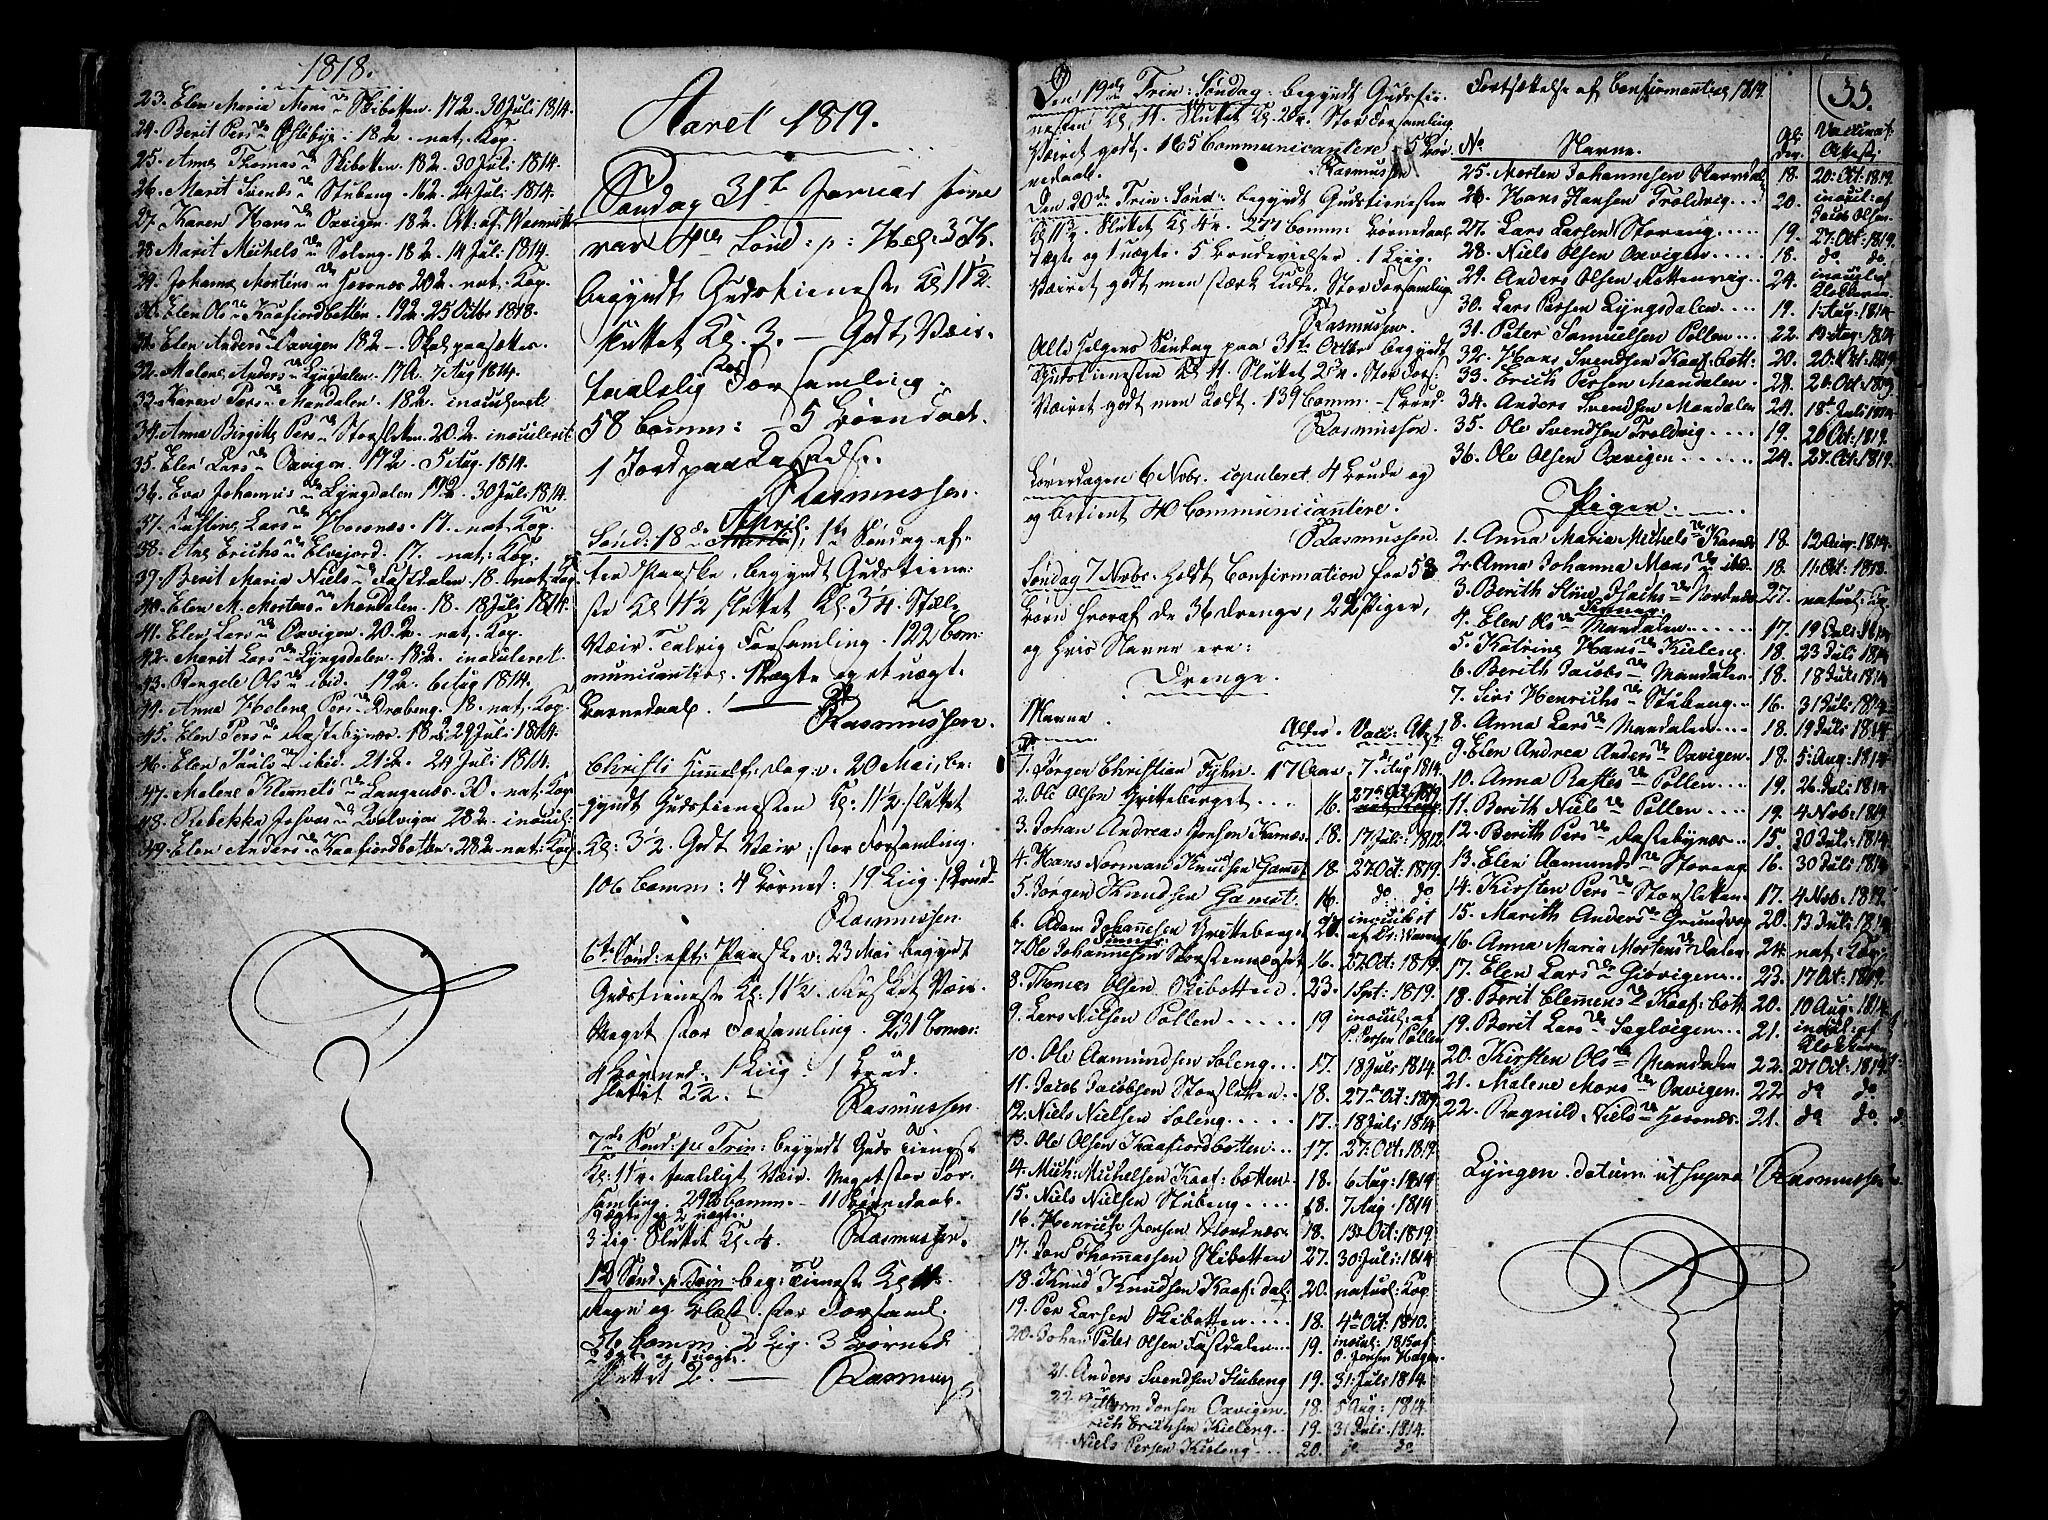 1818.
23. Elen Maria Mons d. Skibotten. 17 2. 30 Juli 1814.
24. Berit Pers d. 18 2. nat. Kop.
25. Anne Thomas d. Skibotten. 18 2. 30 Juli 1814.
26. Marit Svends d. Stubeng. 16 2. 24 Juli 1814.
27. Karen Hans d. Oxvigen. 18 2. Att. af
28. Marit Michels d. Soleng. 18 2. 14 Juli 1814.
29. Johanna Mortens d. Horsnæs 20 2. nat. Kop.
30. Elen Ols d. Kaafiordbotten. 19 2. 25 Octbr 1818.
31. Elen Anders d. Oxvigen 18 2. Skal paasættes.
32. Malene Anders d. Lyngdalen. 17 7 Aug 1814.
33. Karen Pers d. Mandalen. 18 2. inoculeret.
34. Anna Birgitte Pers d. Storsletten. 20. 2. inoculeret.
35. Elen Lars d. Oxvigen. 17 2. 5 Aug. 1814.
36. Eva Johannes d. Lyngdalen 17 2. 30 Juli 1814.
37. Lars d. Horsnæs. 17. nat. Kop.
38. Ane Erichs d. Elvejord. 17. nat: Kop:
39. Berit Maria Niels d. Fastdalen. 18. nat: Kop
40. Elen M. Mortens d. Mandalen. 18. 18 Juli 1814.
41. Elen Lars d. Oxvigen. 20. 2. nat. Kop.
42. Marit Lars d. Lyngsdalen. 18. 2. inoculeret.
43. Ols d. ibid. 19 2. 6 Aug 1814.
44. Anna Helena Pers d. 18. nat. Kop.
45. Elen Pers d. Rastebynæs. 18 2. 29 Juli 1814.
46. Elen Pauls d. ibid. 21. 2. 24 Juli 1814.
47. Malene Klemets d. Langenæs. 30. nat. Kop
48. Rebekka Josvas d. 28 2. inocul:
49. Elen Anders d. Kaafiordbotten. 28 2. nat: Kop.
Aaret 1819.
Søndag 31te Januar som
var 4de Sønd: p: Hel: 3 K.
begyndt Gudstieneste Kl 11 1/2.
sluttet Kl. 3. — Godt Veir.
taalelig Forsamling.
58 Comm: — 5 Børnedaab.
1 Jordpaakastelse.
Rasmussen.
Sønd: 18de April, 1ste Søndag ef-
ter Paaske, begyndt Gudstiene-
ste Kl 11 1/2 sluttet Kl. 3 1/4. Stille
Veir. Talrig Forsamling. 122 Com:
municantere. 1 ægte og et uægte
Barnedaab.
Rasmussen.
Christi Himmelf: dag. 20 Mai, be-
gyndt Gudstienesten Kl: 11 1/2. sluttet
Kl: 3 1/2. Godt Veir, stor Forsamling.
106 Comm: 4 Børned: 19 Liig. 1 Brud.
Rasmussen.
6te Sønd: eft: Paaske. 23 Mai begyndt
Gudstieneste Kl: 11 1/2. Veir.
Meget stor Forsamling. 231 Comm:
4 Børned. 1 Liig. 1 Brud.
sluttet 2 1/2. —
Rasmussen.
7de Sønd: p: Trin: begyndt Guds Tieneste
Kl: taaleligt Veir. Meget stor For-
samling. 292 Comm. — 11 Børnedaab.
9 ægte og 2 uægte.
3 Lig. Sluttet Kl. 4. Rasmussen.
12 Sønd: p Trin: beg: Tieneste Kl 11.
Regn og Blæst. stor Forsaml.
36 Comm. 2 Lig. 3 Børned
2 ægte og 1 uægte.
sluttet 2. — Rasmussen
Den 19de Trin: Søndag begyndt Gudstie-
nesten Kl. 11. Sluttet Kl. 2. Stor Forsamling
Veiret godt. 165 Communicantere. 5 Bør-
nedaab. Rasmussen
Den 20de Trin: Sønd: begyndt Gudstienesten
Kl 11 1/2. Sluttet Kl. 4. 277 Comm: Børnedaab
7 ægte og 1 uægte. 5 Brudevielser. 1 Liig.
Veiret godt men stærk Kulde. Stor Forsamling.
Rasmussen.
Alle Helgens Søndag paa 31te Octbr begyndt
Gudstienesten Kl 11. Sluttet 2. Stor Fors:
Veiret godt men Koldt. 139 Comm. — 1 Brud.
Rasmussen.
Løverdagen 6 Novbr. copuleret 4 Brude og
og betient 40 Communicantere.
Rasmussen.
Søndag 7 Novbr. holdt Confirmation for 58
Børn hvoraf de 36 Drenge, 22 Piger,
og hvis Navne ere:
Drenge.
Navne. Alder. Vacc: Attest
1. Jørgen Christian Fyhn. 17 Aar. 7de Aug 1814.
2. Ole Olsen Gritteberget . . . 16. 27de Oct: 1819
3. Johan Andreas Jensen Karnes. 18. 17 Juli: 1812
4. Hans Norman Knudsen Gamst 18. 27 Oct: 1819.
5. Jørgen Knudsen Gamst. 16. do do
6. Adam Johannesen Gritteberget 20. inoculeret
7. Ole Johannesen Storstennæset 16. 22 Oct: 1819.
8. Thomas Olsen Skibotten. 23. 1 Spt: 1819.
9. Lars Nilsen Pollen . . . . . 19 inocul: af
P. Persen Pollen
10. Ole Aamundsen Soleng . . . 17. 18 Juli: 1814
11. Jacob Jacobsen Storsletten . . 18. 27de Oct: 1819.
12. Niels Nielsen Soleng . . . . 17. 18 Juli: 1814
13. Ole Olsen Kaafiordbotten . . . 17. 27. Oct: 1819.
14. Mich: Michelsen Kaaf: botten . . 18. 6 Aug: 1814
15. Niels Nielsen Stubeng . . . . 18. 7 Aug: 1814
16. Henrich Jensen Nordnæs. 18. 13 Oct: 1819.
17. Jon Thomassen Skibotten 27. 30 Juli: 1814
18. Knud Knudsen Kaaf: dal. 20. natur: Kop
19. Per Larsen Skibotten . . . . 18. 4de Oct: 1810.
20. Johan Peter Olsen Fastdalen . . 19. inocul: 1815 af
O. Jensen Hagen
21. Anders Svendsen Stubeng 19. 31 Juli: 1814.
22. Jonsen Oxvigen. 18. 5 Aug: 1814
23. Erich Erichsen Kieleng . . . 19. 31 Juli: 1814.
24. Niels Persen Kieleng . . . 20. do do
Fortsættelse af Confirmantene 1819. 33.
No Navne. Al-der. Vaccinat: Attest
25. Morten Johannesen 18. 20 Oct: 1819.
26. Hans Hansen Troldvig . . . 20. inocul: af
Jacob Olsen.
27. Lars Larsen Storeng . . . . 19. 27 Oct: 1819.
28. Niels Olsen Oxvigen . . . . 18. do do
29. Anders Olsen Rottenvig . . 24. inocul: af
Klokkeren.
30. Lars Persen Lyngsdalen . . . . 19. 1 Aug: 1814
31. Peter Samuelsen Pollen . . . 22. 19 Aug: 1814
32. Hans Svendsen Kaaf: bott: 20. 20 Oct: 1819
33. Erich Persen Mandalen . . 28. 20 Oct: 1819.
34. Anders Svendsen Mandalen 24. 18de Juli 1814
35. Ole Svendsen Troldvig . . . . 19. 20 Oct: 1819.
36. Ole Olsen Oxvigen . . . . . . 24. 27 Oct: 1819.
Piger.
1. Anna Maria Michels d. Karnes 18. 12 Aug: 1814.
2. Anna Johanna Mons d. 18. 11 Oct: 1818.
3. Berith Stina Isachs d. Nordnæs 27. natul: Ko
4. Elen Ols d. Mandalen . . . . . . 17. 19 Juli: 1814
5. Katrine Hans d. Kieleng. 18. 23 Juli: 1814
6. Berith Jacobs d. Mandalen 18. 18 Juli: 1814
7. Siri Henrichs d. Stubeng . . . 16. 31 Juli: 1814
8. Anna Lars d. Mandalen . . . 18. 19 Juli: 1814
9. Elen Andrea Anders d. Oxvigen 18. 5 Aug: 1814
10. Anna d. Pollen . . . 19. 26 Juli: 1814
11. Berith Niels d. Pollen . . . 19. 4 Nov: 1819
12. Berith Pers d. Rastebynæs . . . 15. 30 Juli: 1814
13. Elen Aamunds d. Storeng . . 16. 30 Juli: 1814
14. Kirsten Pers d. Storsletten . . 17. 4 Nov: 1819.
15. Marith Anders d. Grundvog 20. 13 Juli: 1814
16. Anna Maria Mortens d. 24. nat: Kop:
17. Elen Lars d. Giøvigen . . . 23. 17 Oct: 1819.
18. Berit Clemens d. Kaaf: bott. 20. 10 Aug: 1814
19. Berit Lars d. Seglvigen . . . 21. inocul: af
Klokkeren
20. Kirsten Ols d. Mandalen 22. 27 Oct: 1819.
21. Malene Mons d. Oxvigen. 22. do do
22. Ragnild Niels d. Horsnæs. 21. do do
Lyngen datum ut supra Rasmussen